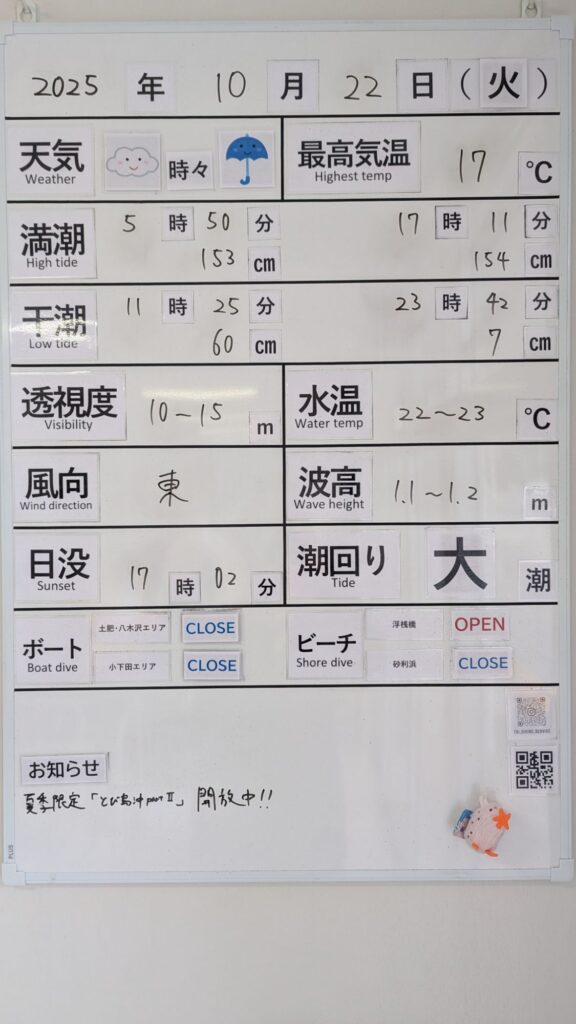 2025 年 10 月 22 日 (火)
天気 時々 最高気温 17 ℃
Weather Highest temp
満潮 5 時 50 分 17 時 11 分
High tide 153 cm 154 cm
干潮 11 時 25 分 23 時 42 分
Low tide 60 cm 7 cm
透視度 10〜15 m 水温 22〜23 ℃
Visibility Water temp
風向 東 波高 1.1〜1.2 m
Wind direction Wave height
日没 17 時 02 分 潮回り 大 潮
Sunset Tide
ボート 土肥・八木沢エリア CLOSE ビーチ 浮桟橋 OPEN
Boat dive 小下田エリア CLOSE Shore dive 砂利浜 CLOSE
TOI_DIVING_SERVICE
お知らせ
夏季限定「とび島沖partⅡ」開放中!!
PLUS